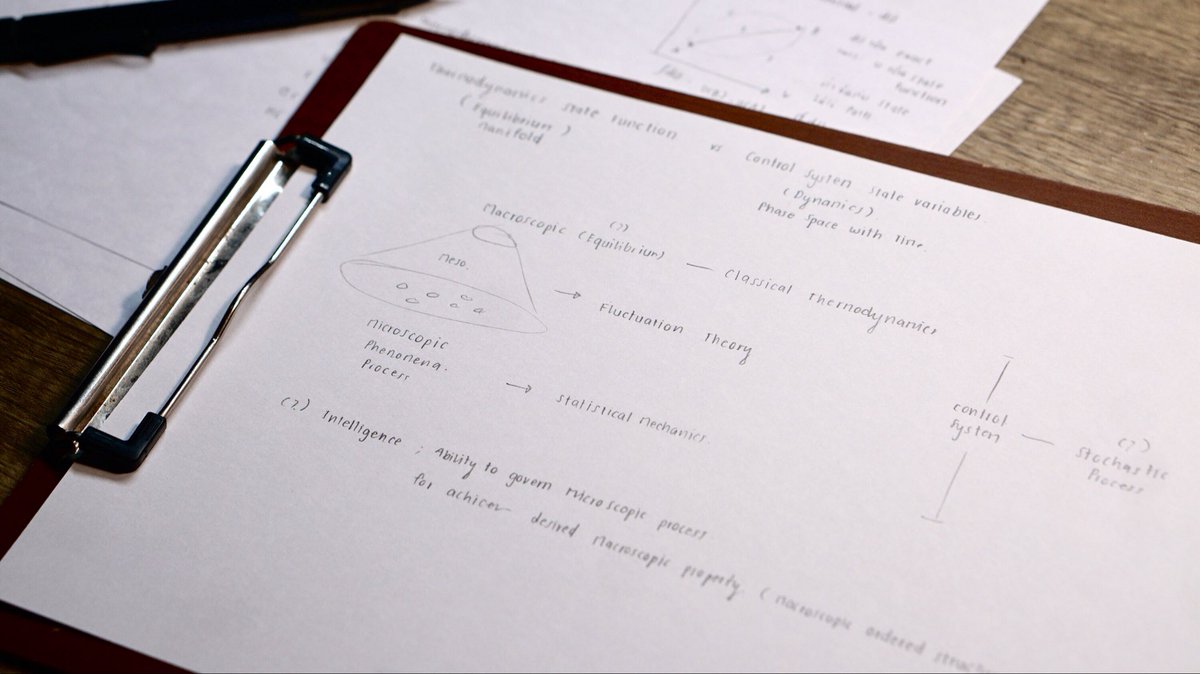 Thermodynamics state function vs Control System state variables
(Equilibrium) (Dynamics)
Manifold Phase Space with Time.
(?)
Macroscopic (Equilibrium) — Classical Thermodynamics
Meso. → Fluctuation Theory
Microscopic
Phenomena.
Process → Statistical Mechanics.
control
System — (?)
Stochastic
Process
(2) Intelligence ; Ability to govern Microscopic process
for achieve desired Macroscopic property. (Macroscopic ordered
exact
state
function
state
path